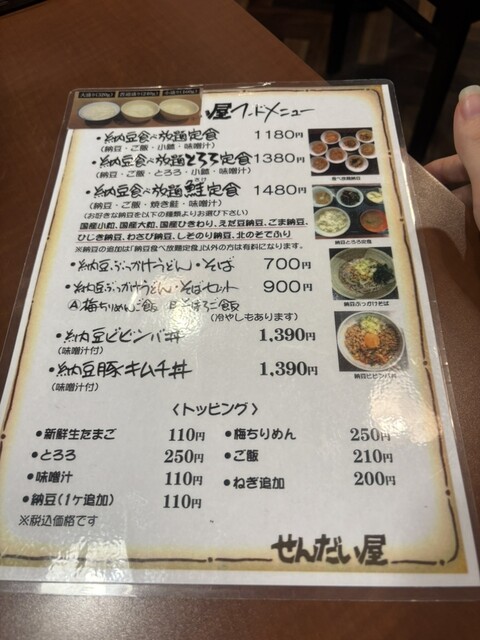 昼フードメニュー
・納豆食べ放題定食 1180円
(納豆・ご飯・小鉢・味噌汁)
・納豆食べ放題とろろ定食 1380円
(納豆・ご飯・とろろ・小鉢・味噌汁)
・納豆食べ放題鮭定食 1480円
(納豆・ご飯・焼き鮭・味噌汁)
(お好きな納豆を以下の種類よりお選び下さい)
国産小粒、国産大粒、国産ひきわり、えだ豆納豆、ごま納豆、
ひじき納豆、わさび納豆、しそのり納豆、北のそでふり
※納豆の追加は「納豆食べ放題定食」以外の方は有料になります。
食べ放題納豆
納豆とろろ定食
・納豆ぶっかけうどん・そば 700円
・納豆ぶっかけうどん・そばセット 900円
Ⓐ梅ちりめんご飯 Ⓑそぼろご飯
(冷やしもあります)
納豆ぶっかけそば
・納豆ビビンバ丼 1,390円
(味噌汁付)
・納豆豚キムチ丼 1,390円
(味噌汁付)
納豆ビビンバ丼
〈トッピング〉
・新鮮生たまご 110円
・とろろ 250円
・味噌汁 110円
・納豆(1ケ追加) 110円
・梅ちりめん 250円
・ご飯 210円
・ねぎ追加 200円
※税込価格です
せんだい屋